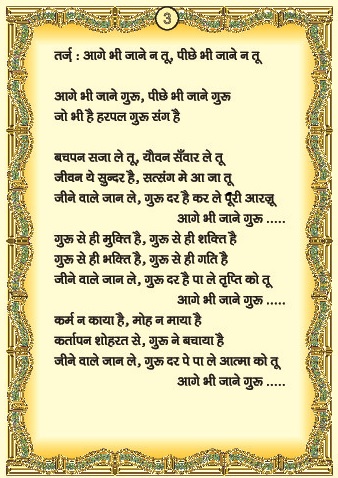 3
तर्ज़ : आगे भी जाने न तू, पीछे भी जाने न तू
आगे भी जाने गुरू, पीछे भी जाने गुरू
जो भी है हरपल गुरू संग है
बचपन सजा ले तू, यौवन सँवार ले तू
जीवन ये सुन्दर है, सत्संग मे आ जा तू
जीने वाले जान ले, गुरू दर है कर ले पूरी आरज़ू
आगे भी जाने गुरू .....
गुरू से ही मुक्ति है, गुरू से ही शक्ति है
गुरू से ही भक्ति है, गुरू से ही गति है
जीने वाले जान ले, गुरू दर है पा ले तृप्ति को तू
आगे भी जाने गुरू .....
कर्म न काया है, मोह न माया है
कर्तापन शोहरत से, गुरू ने बचाया है
जीने वाले जान ले, गुरू दर पे पा ले आत्मा को तू
आगे भी जाने गुरू .....